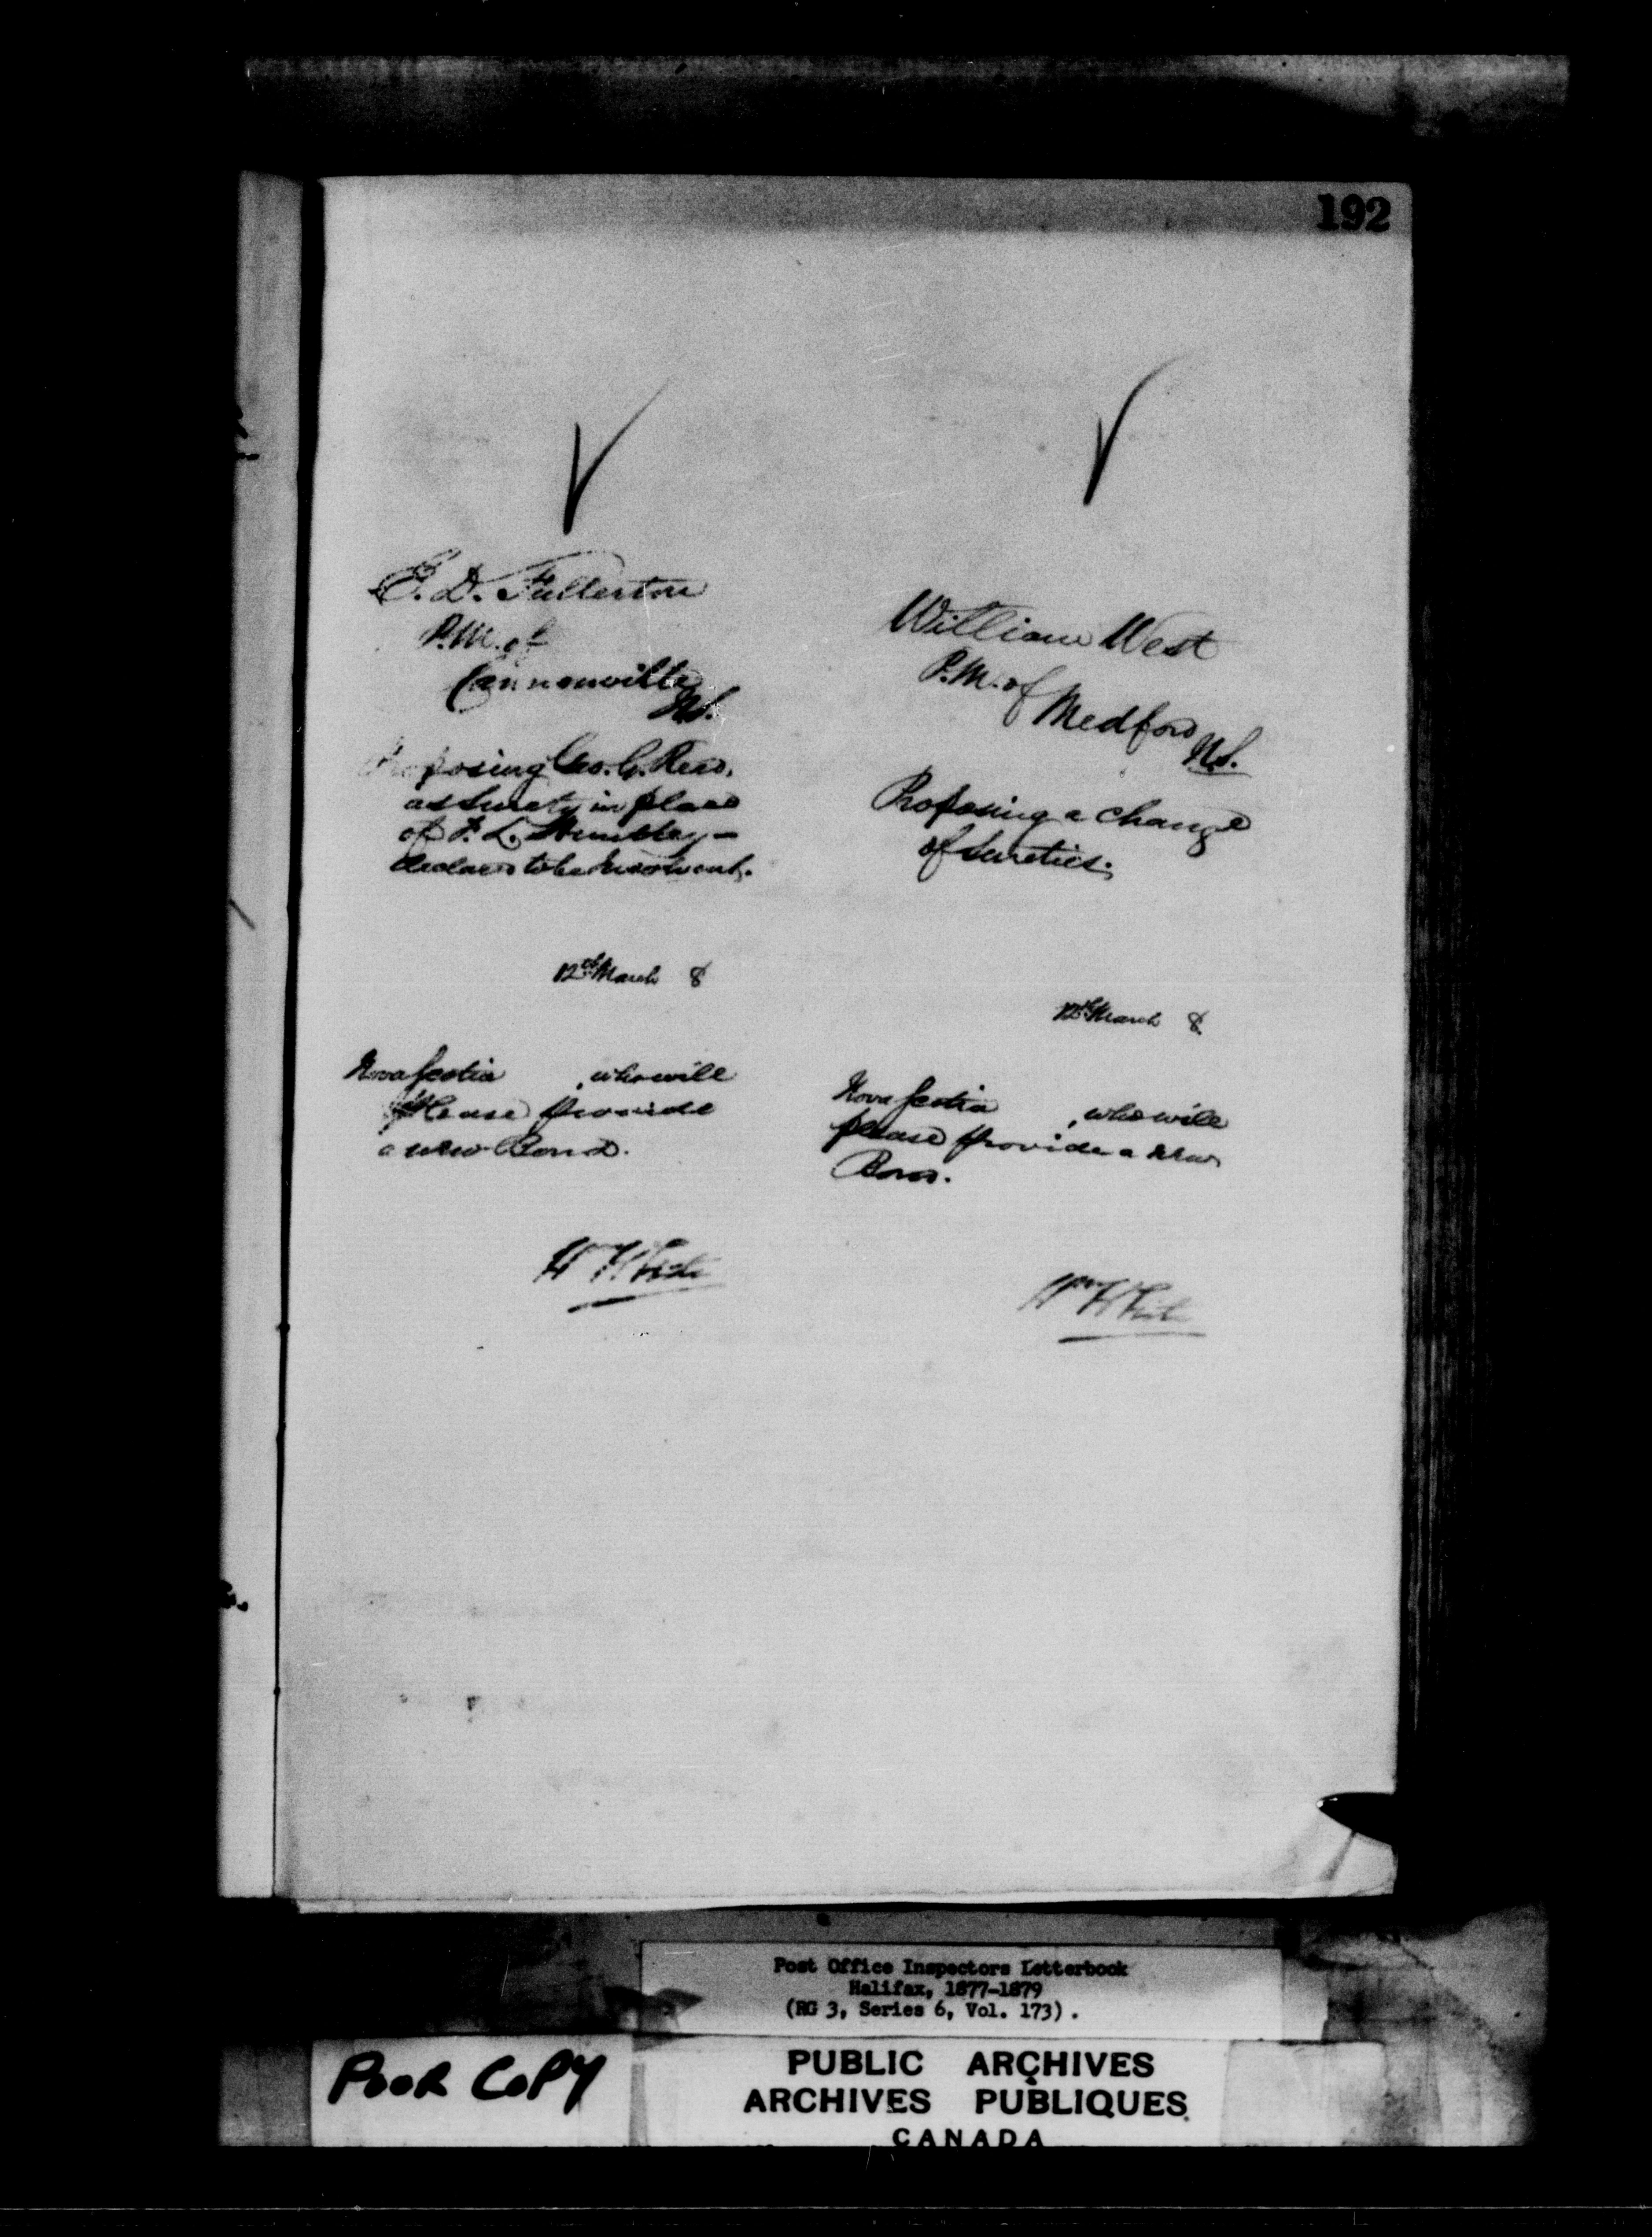 192
E. D. Fullerton
P.M. of
Cannonville
N.S.
Proposing Geo. G. Read,
as Surety in place
of P. L. Huntley -
declared to be Insolvent.
12th March 8
Nova Scotia , who will
please provide
a new Bond.
W White
William West
P.M. of
Medford
N.S.
Proposing a change
of Sureties.
12th March 8
Nova Scotia , who will
please provide a new
Bond.
Wm White
Post Office Inspectors Letterbook
Halifax, 1877-1879
(RG 3, Series 6, Vol. 173).
POOR COPY
PUBLIC ARCHIVES
ARCHIVES PUBLIQUES
CANADA